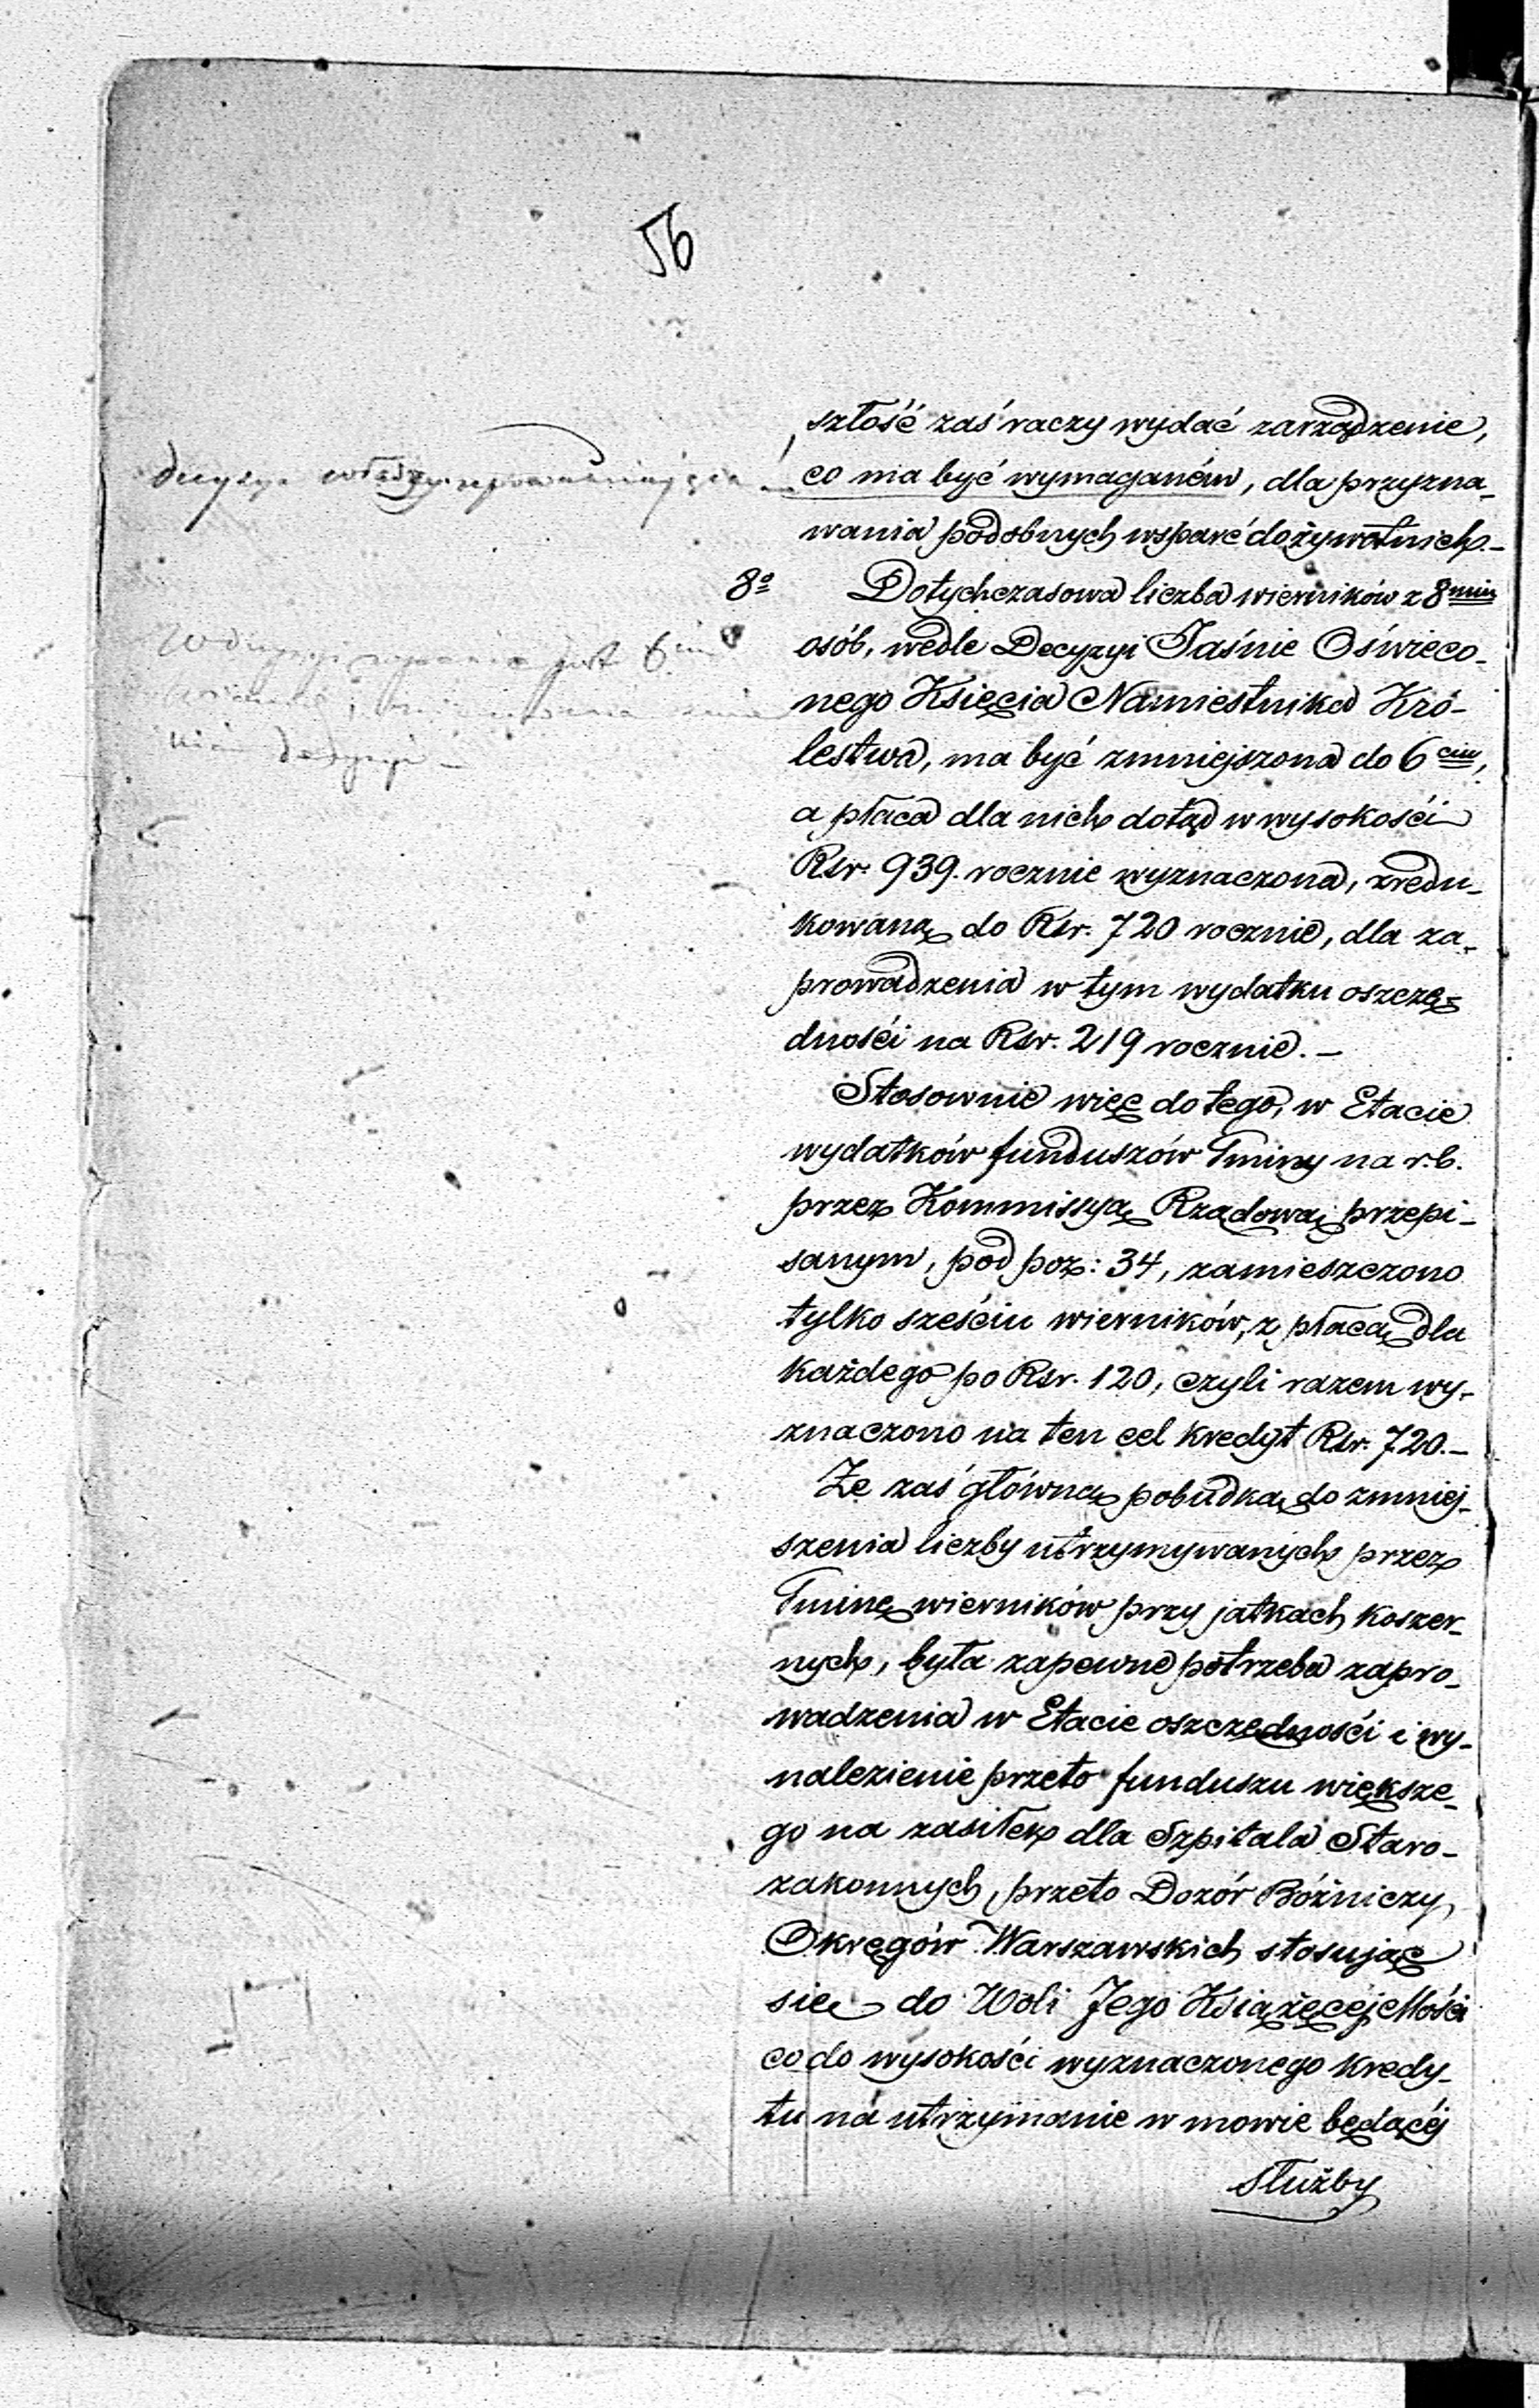 56
szłość zaś raczy wydać zarządzenie,
co ma być wymaganém, dla przyzna-
wania podobnych wsparć dożywotnich.-
8o Dotychczasowa liczba wierników z 8miu
osób, wedle Decyzyi Jaśnie Oświeco-
nego Księcia Namiestnika Kró-
lestwa, ma być zmniejszona do 6ciu,
a płaca dla nich dotąd w wysokości
Rsr. 939. rocznie wyznaczona, zredu-
kowaną do Rsr. 720 rocznie, dla za-
prowadzenia w tym wydatku oszczę-
dności na Rsr. 219 rocznie.-
Stosownie więc do tego, w Etacie
wydatków funduszów Gminy na r.b.
przez Kommissyą Rządową przepi-
sanym, pod poz: 34, zamieszczono
tylko sześciu wierników, z płacą dla
każdego po Rsr. 120, czyli razem wy-
znaczono na ten cel kredyt Rsr. 720.-
Że zaś główną pobudką do zmniej-
szenia liczby utrzymywanych przez
Gminę wierników przy jatkach koszer-
nych, była zapewne potrzeba zapro-
wadzenia w Etacie oszczędności i wy-
nalezienie przeto funduszu większe-
go na zasiłek dla Szpitala Staro-
zakonnych, przeto Dozór Bóżniczy
Okręgów Warszawskich stosując
się do Woli Jego Książęcej Mości
co do wysokości wyznaczonego kredy-
tu na utrzymanie w mowie będącéj
służby
decyzya władzy
W decyzyi jest 6ciu
decyzyi -